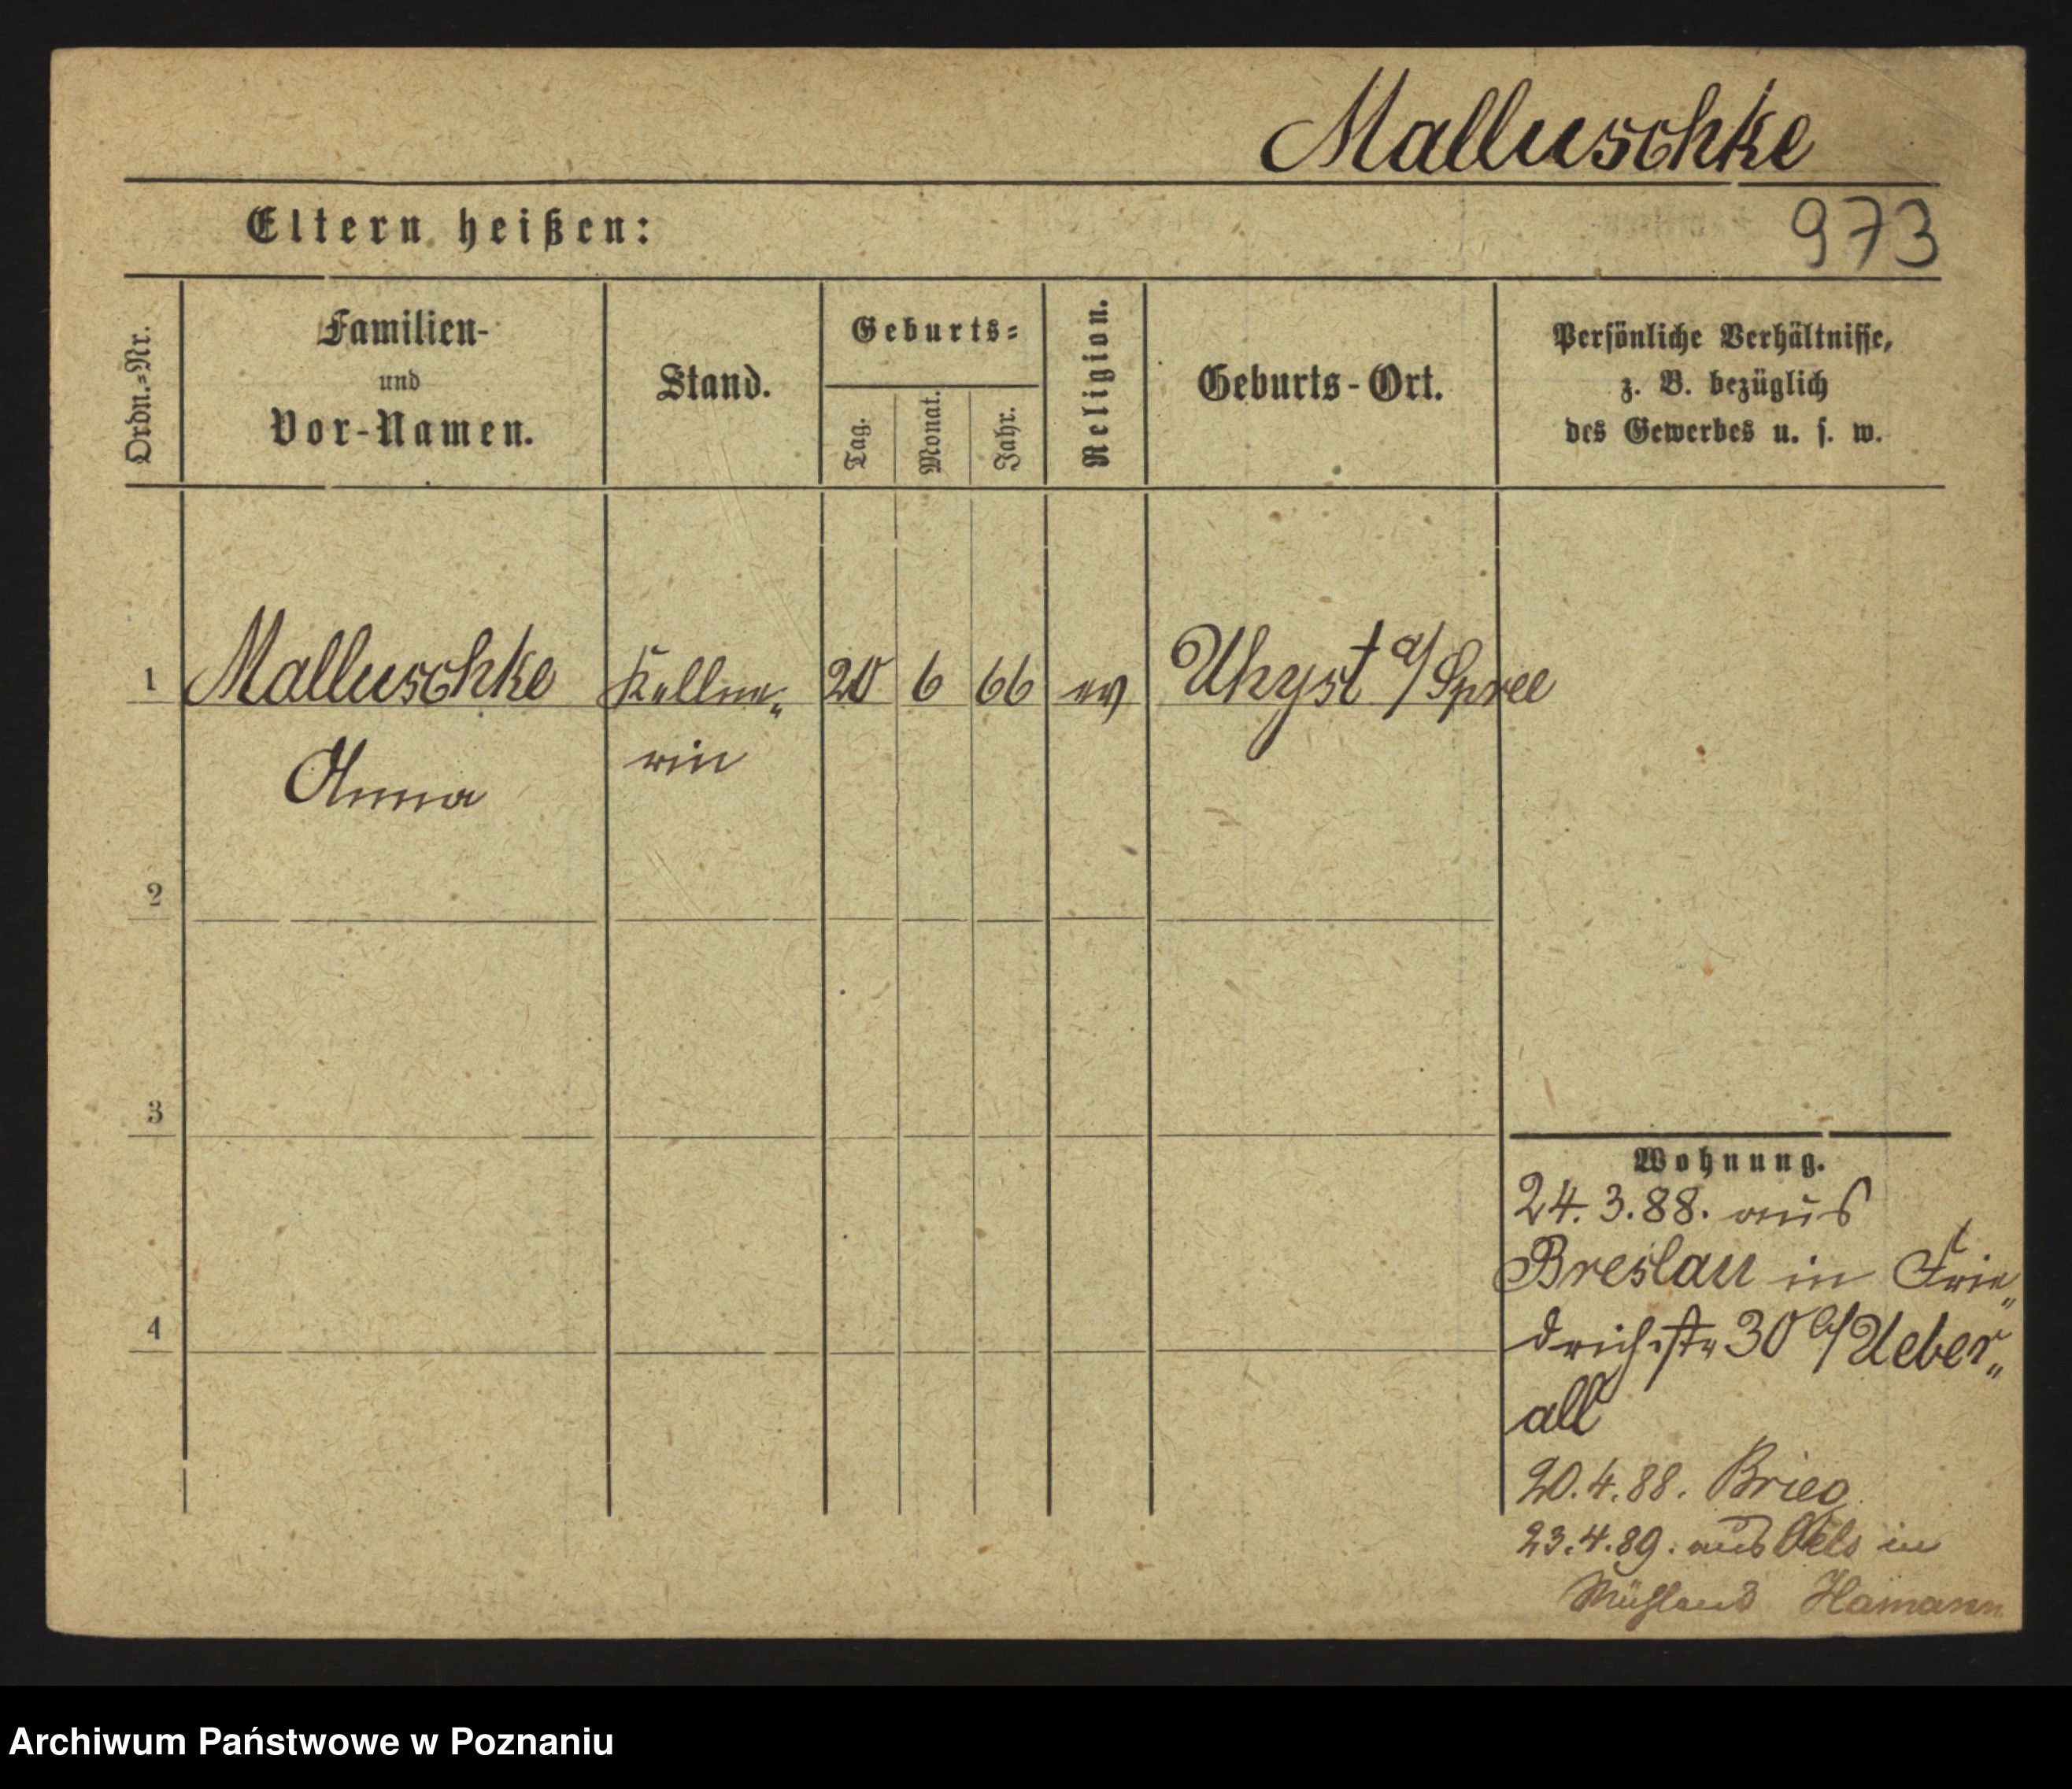 Malluschke
Eltern heißen:
973
Ordn.=Nr.
Familien-
und
Vor-Namen.
Stand.
Geburts=
Tag.
Monat.
Jahr.
Religion.
Geburts-Ort.
Persönliche Verhältnisse,
z. B. bezüglich
des Gewerbes u. s. w.
1 Malluschke Kellne„ 20 6 66 ev Uhyst a/Spree
Anna rin
2
3
4
Wohnung.
24.3.88. aus
Breslau in Frie„
drichstr 30 b/Ueber„
all
20.4.88. Brieg
23.4.89. aus Oels in
Hamann
Archiwum Państwowe w Poznaniu